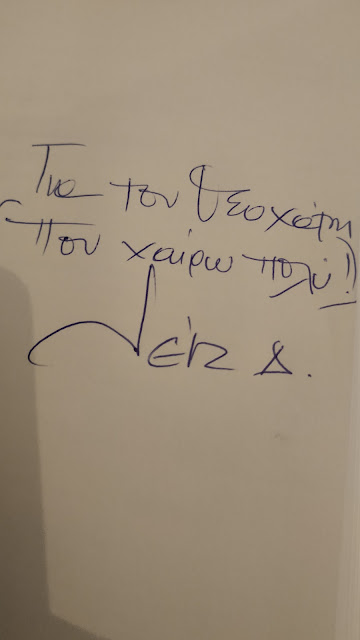 Για τον Θεοχάρη
(που χαίρω πολύ!)